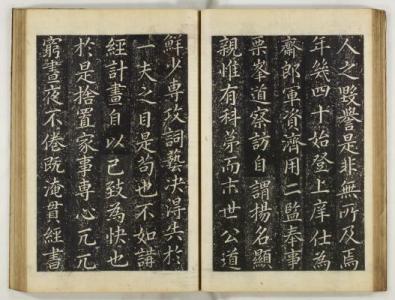 人之毀譽是非無所及焉
年幾四十始登上庠仕為
齋郎軍資濟用二監奉事
栗峯道察訪自謂揚名顯
親惟有科第而末世公道
鮮少專攻詞藝決得失於
一夫之目是苟也不如講
經計畫自以己致為快也
於是捨置家事專心兀兀
窮晝夜不倦既淹貫經書